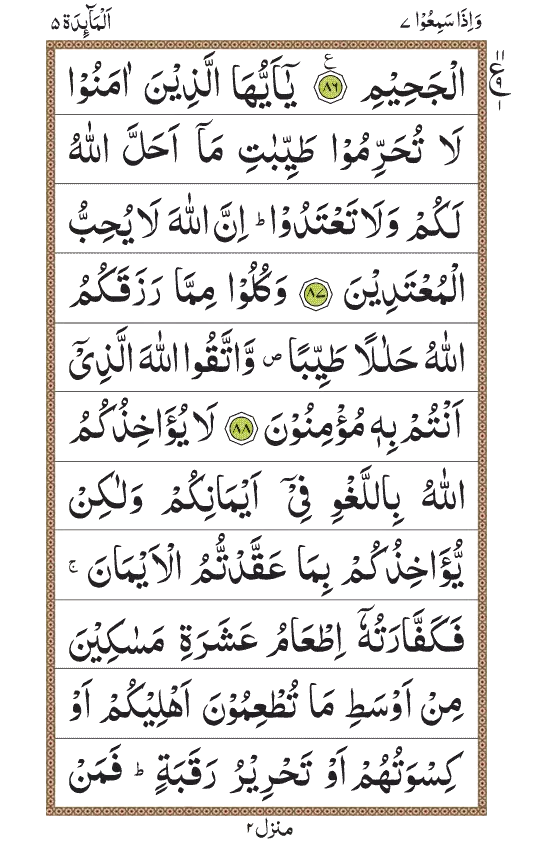 وَاِذَا سَمِعُوْا ۷
اَلْمَآئِدَة ۵
الْجَحِيْمِ ﴿۸۶﴾ ع يٰۤاَيُّهَا الَّذِيْنَ اٰمَنُوْا
ع ۱۱ ۹ ۱
لَا تُحَرِّمُوْا طَيِّبٰتِ مَاۤ اَحَلَّ اللّٰهُ
لَـكُمْ وَلَا تَعْتَدُوْا ؕ اِنَّ اللّٰهَ لَا يُحِبُّ
الْمُعْتَدِيْنَ ﴿۸۷﴾ وَكُلُوْا مِمَّا رَزَقَكُمُ
اللّٰهُ حَلٰلًا طَيِّبًا ص وَّاتَّقُوا اللّٰهَ الَّذِىْۤ
اَنْتُمْ بِهٖ مُؤْمِنُوْنَ ﴿۸۸﴾ لَا يُؤَاخِذُكُمُ
اللّٰهُ بِاللَّغْوِ فِىْۤ اَيْمَانِكُمْ وَلٰـكِنْ
يُّؤَاخِذُكُمْ بِمَا عَقَّدْتُّمُ الْاَيْمَانَ ۚ
فَكَفَّارَتُهٗۤ اِطْعَامُ عَشَرَةِ مَسٰكِيْنَ
مِنْ اَوْسَطِ مَا تُطْعِمُوْنَ اَهْلِيْكُمْ اَوْ
كِسْوَتُهُمْ اَوْ تَحْرِيْرُ رَقَبَةٍ ؕ فَمَنْ
منزل ۲